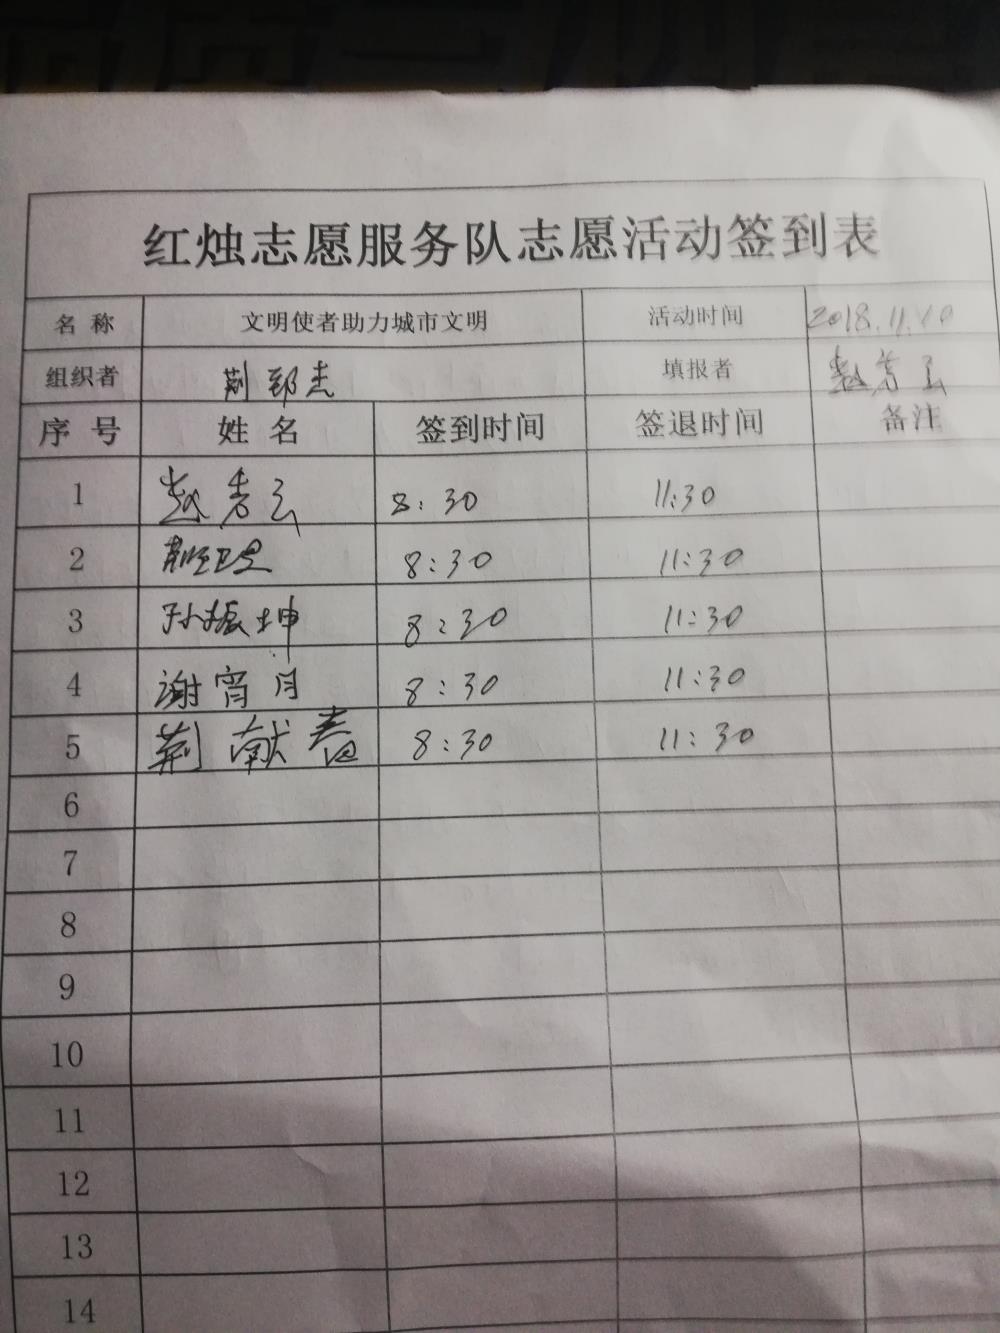 红烛志愿服务队志愿活动签到表
名 称 文明使者助力城市文明 活动时间 2018.11.10
组织者 荆郅杰 填报者 赵芳云
序 号 姓 名 签到时间 签退时间 备注
1 赵芳云 8:30 11:30
2 8:30 11:30
3 孙振坤 8:30 11:30
4 谢宵月 8:30 11:30
5 荆献春 8:30 11:30
6
7
8
9
10
11
12
13
14